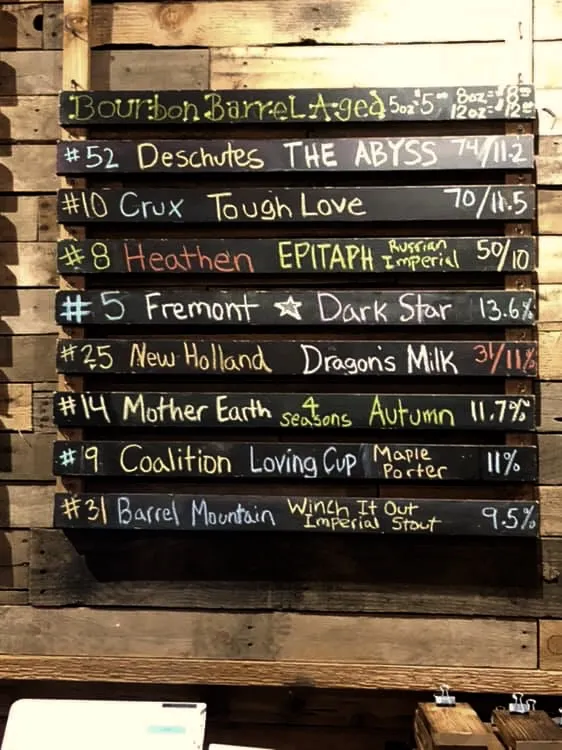 Bourbon Barrel Aged 5oz=$5⁰⁰ 8oz=$8⁰⁰ 12oz=$12⁰⁰
#52 Deschutes THE ABYSS 74/11.2
#10 Crux Tough Love 70/11.5
#8 Heathen EPITAPH Russian Imperial 50/10
#5 Fremont ☆ Dark Star 13.6%
#25 New Holland Dragon's Milk 31/11%
#14 Mother Earth 4 seasons Autumn 11.7%
#9 Coalition Loving Cup Maple Porter 11%
#31 Barrel Mountain Winch It Out Imperial Stout 9.5%